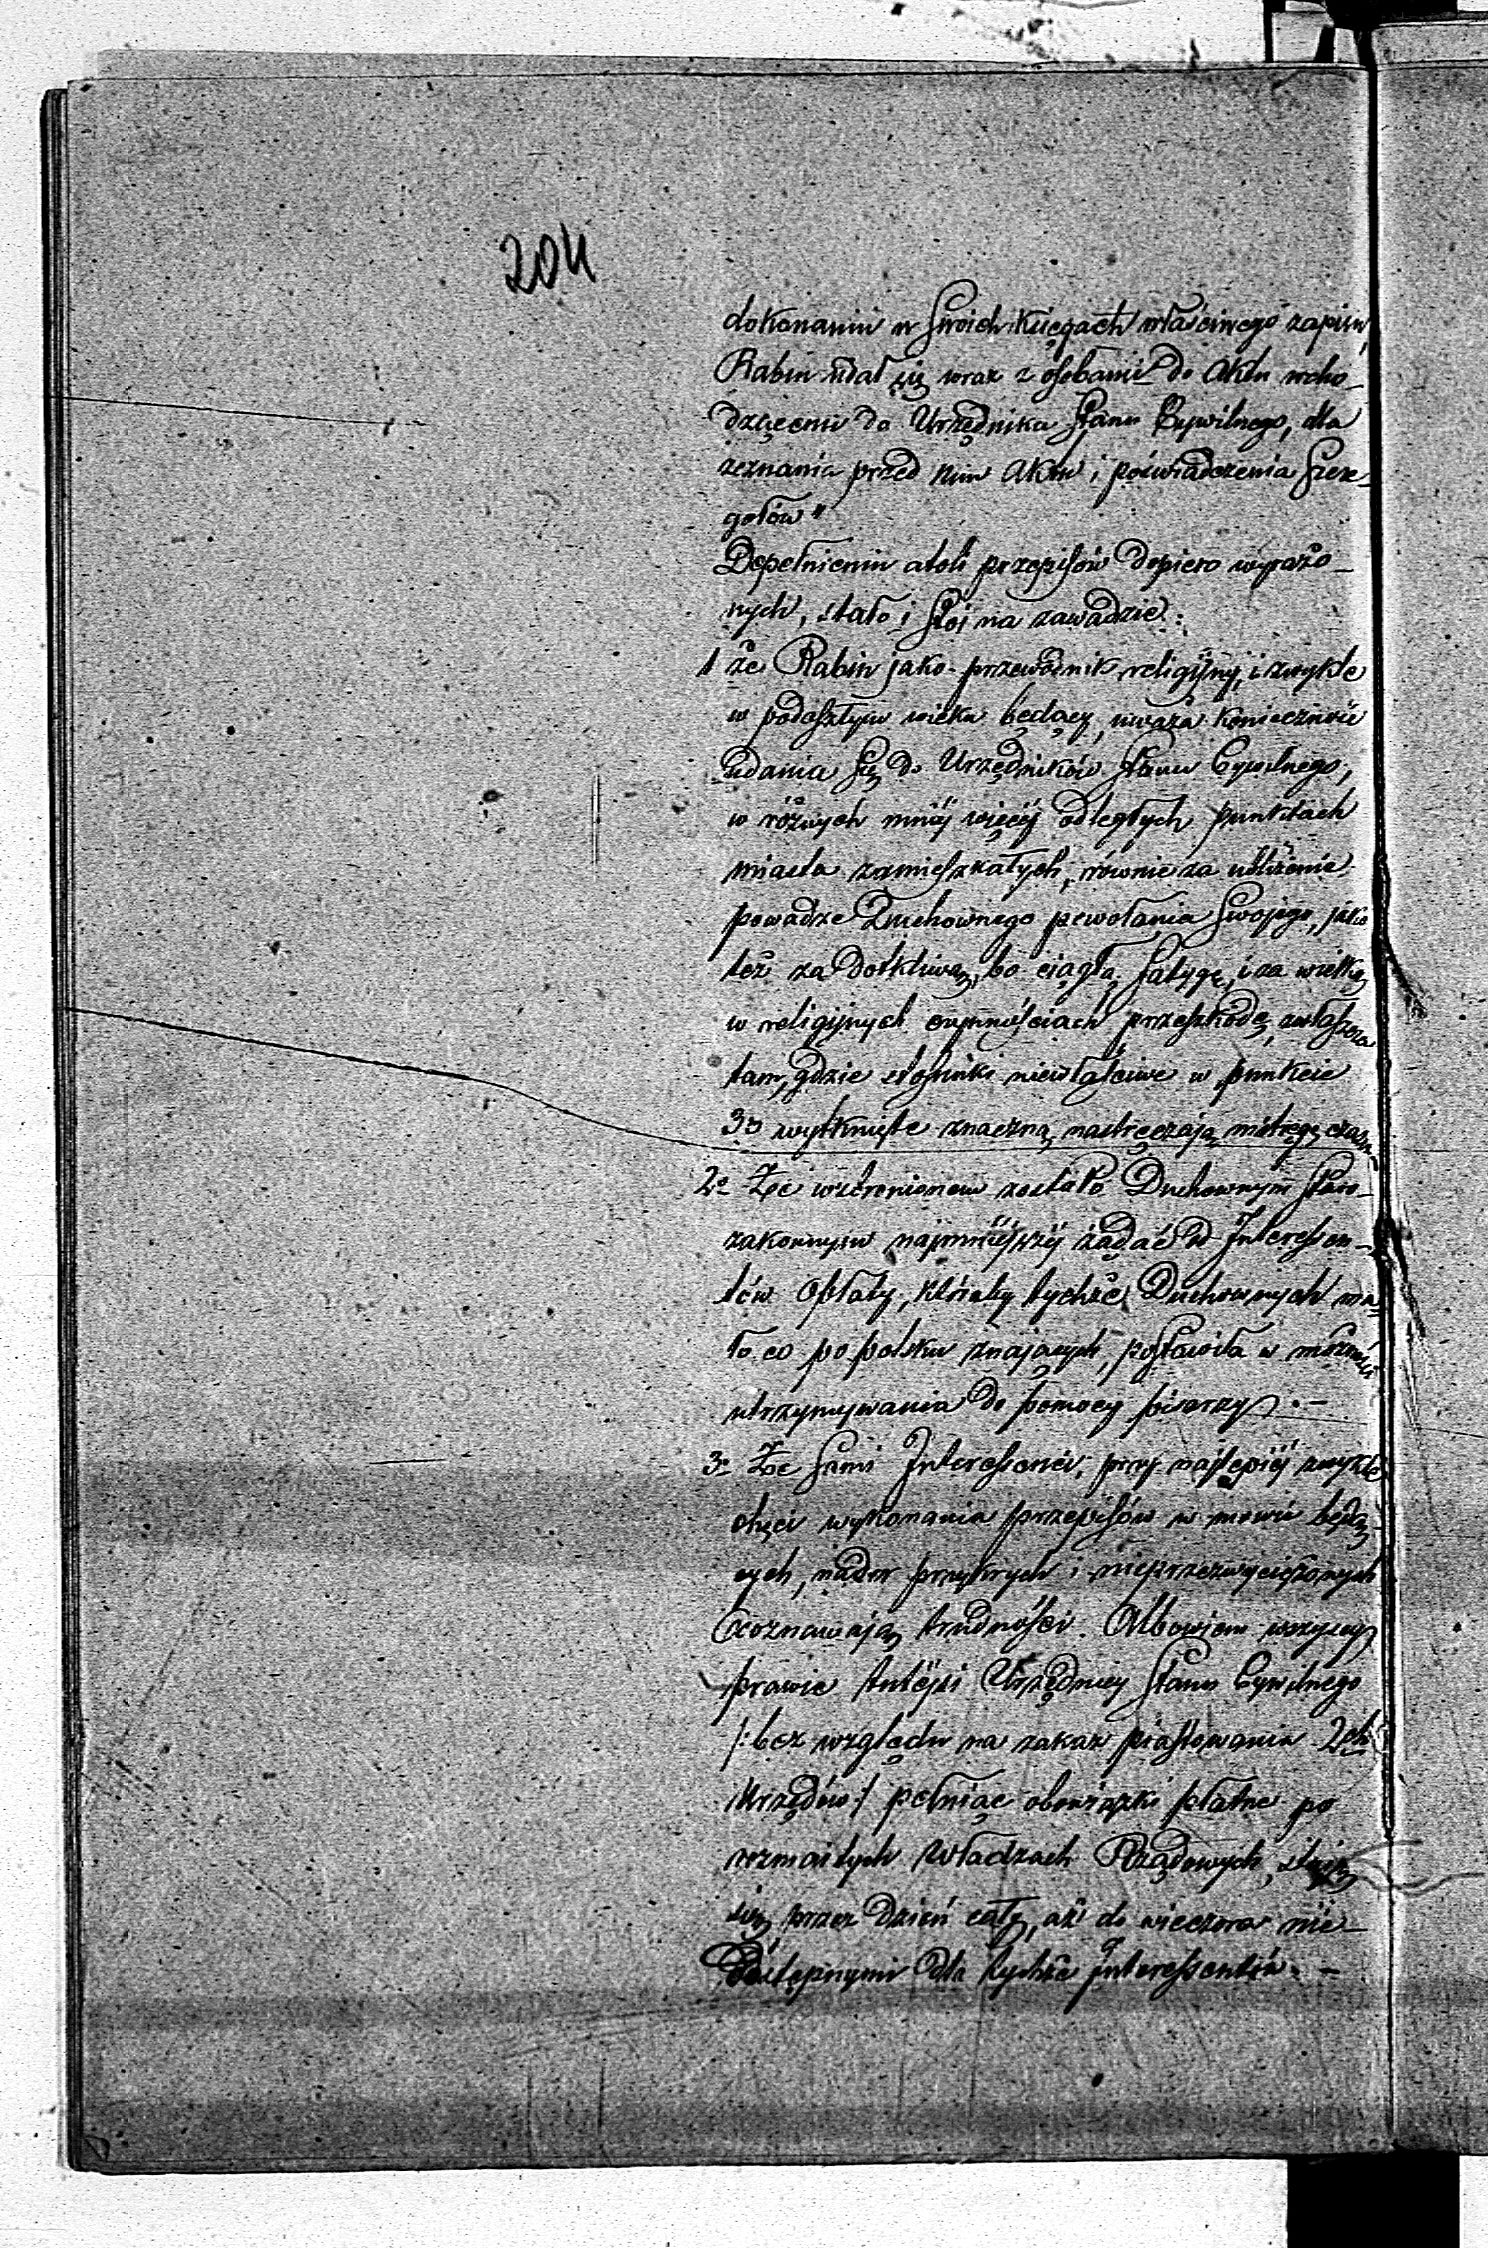 204
dokonaniu w Swoich Księgach właściwego zapisu,
Rabin udał się wraz z osobami do Aktu wcho-
dzącemi do Urzędnika Stanu Cywilnego, dla
zeznania przed nim Aktu i poświadczenia Szcze-
gołów"
Dopełnieniu atoli przepisów dopiero wyrażo-
nych, stało i stoi na zawadzie:
1 że Rabin jako przewodnik religijny, i zwykle
w podeszłym wieku będący, uważa konieczność
udania się do Urzędników Stanu Cywilnego,
w różnych mniéj więcéj odległych punktach
miasta zamieszkałych, równie za ubliżenie
powadze Duchownego powołania Swojego, jako
też za dotkliwą, bo ciągłą fatygę, i za wielką
w religijnych czynnościach przeszkodę, zwłaszcza
tam, gdzie stosunki niewłaściwe w punkcie
3o wytknięte znaczną nastręczają mitręgę czasu
2o Że wzbronionem zostało Duchownym Staro-
zakonnym najmniejszéj żądać od Interessen-
tów Opłaty, któraby tychże Duchownych ma-
ło co po polsku znających, postawiła w możności
utrzymywania do pomocy pisarzy. -
3o Że Sami Interessenci, przy najlepiéj zwykle
chęci wykonania przepisów w mowie będą-
cych, nader przykrych i nieprzezwyciężonych
doznawają trudności. Albowiem wszyscy
prawie tutejsi Urzędnicy Stanu Cywilnego
/: bez względu na zakaz piastowania 2ch
Urzędów :/ pełniąc obowiązki płatne po
rozmaitych Władzach Rządowych, stają
się przez dzień cały, aż do wieczora nie-
dostępnymi dla tychże Interessentów. -